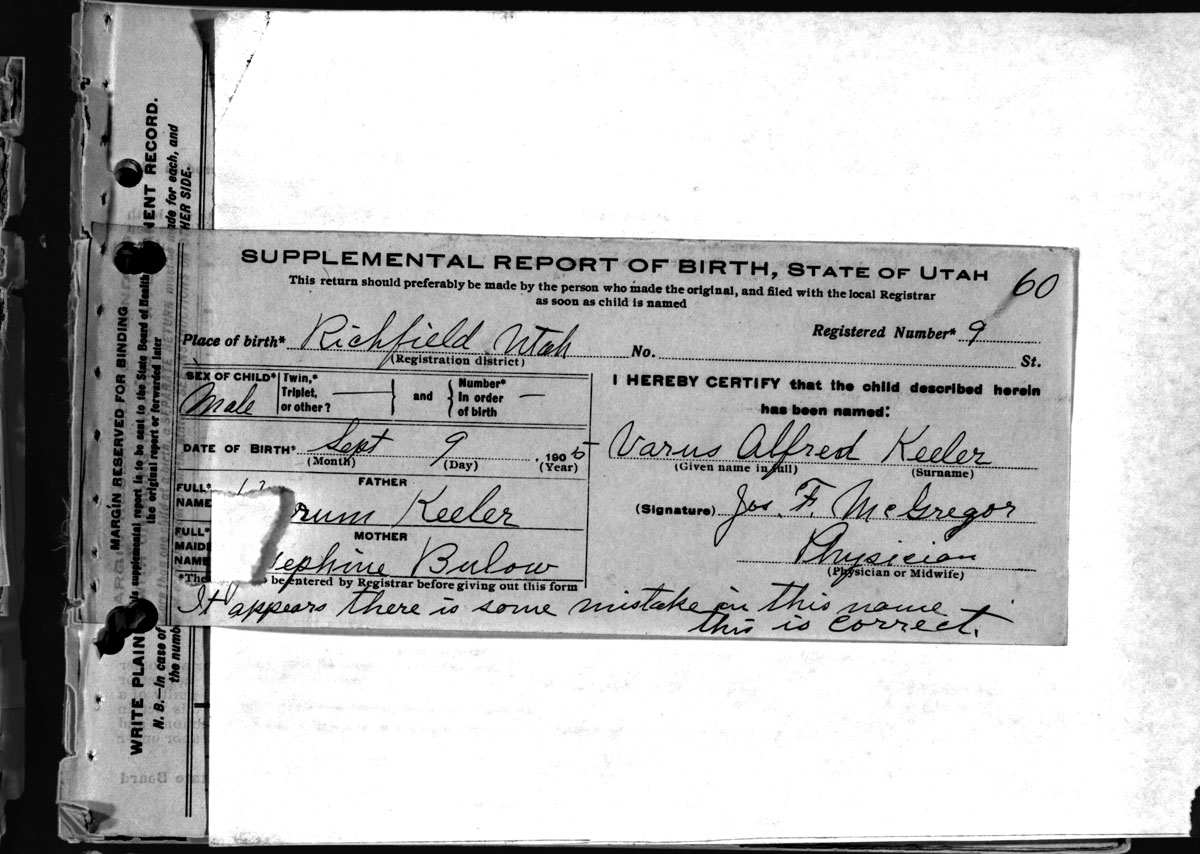 SUPPLEMENTAL REPORT OF BIRTH, STATE OF UTAH
60
This return should preferably be made by the person who made the original, and filed with the local Registrar
as soon as child is named
Registered Number* 9
Place of birth* Richfield Utah No. St.
(Registration district)
SEX OF CHILD* Male
Twin,*
Triplet,
or other? —
and
Number*
In order
of birth —
DATE OF BIRTH* Sept 9, 1905
(Month) (Day) (Year)
FATHER
FULL*
NAME
rum Keeler
MOTHER
FULL*
MAIDE
NAME
ephine Bulow
*The be entered by Registrar before giving out this form
I HEREBY CERTIFY that the child described herein
has been named:
Varus Alfred Keeler
(Given name in full) (Surname)
(Signature) Jos. F. McGregor
Physician
(Physician or Midwife)
It appears there is some mistake in this name
this is correct.
MARGIN RESERVED FOR BINDING
is supplemental report to be sent to the State Board of Health
the original report or forwarded later
WRITE PLAIN
NENT RECORD.
N. B.—In case of
ade for each, and
the numb
HER SIDE.